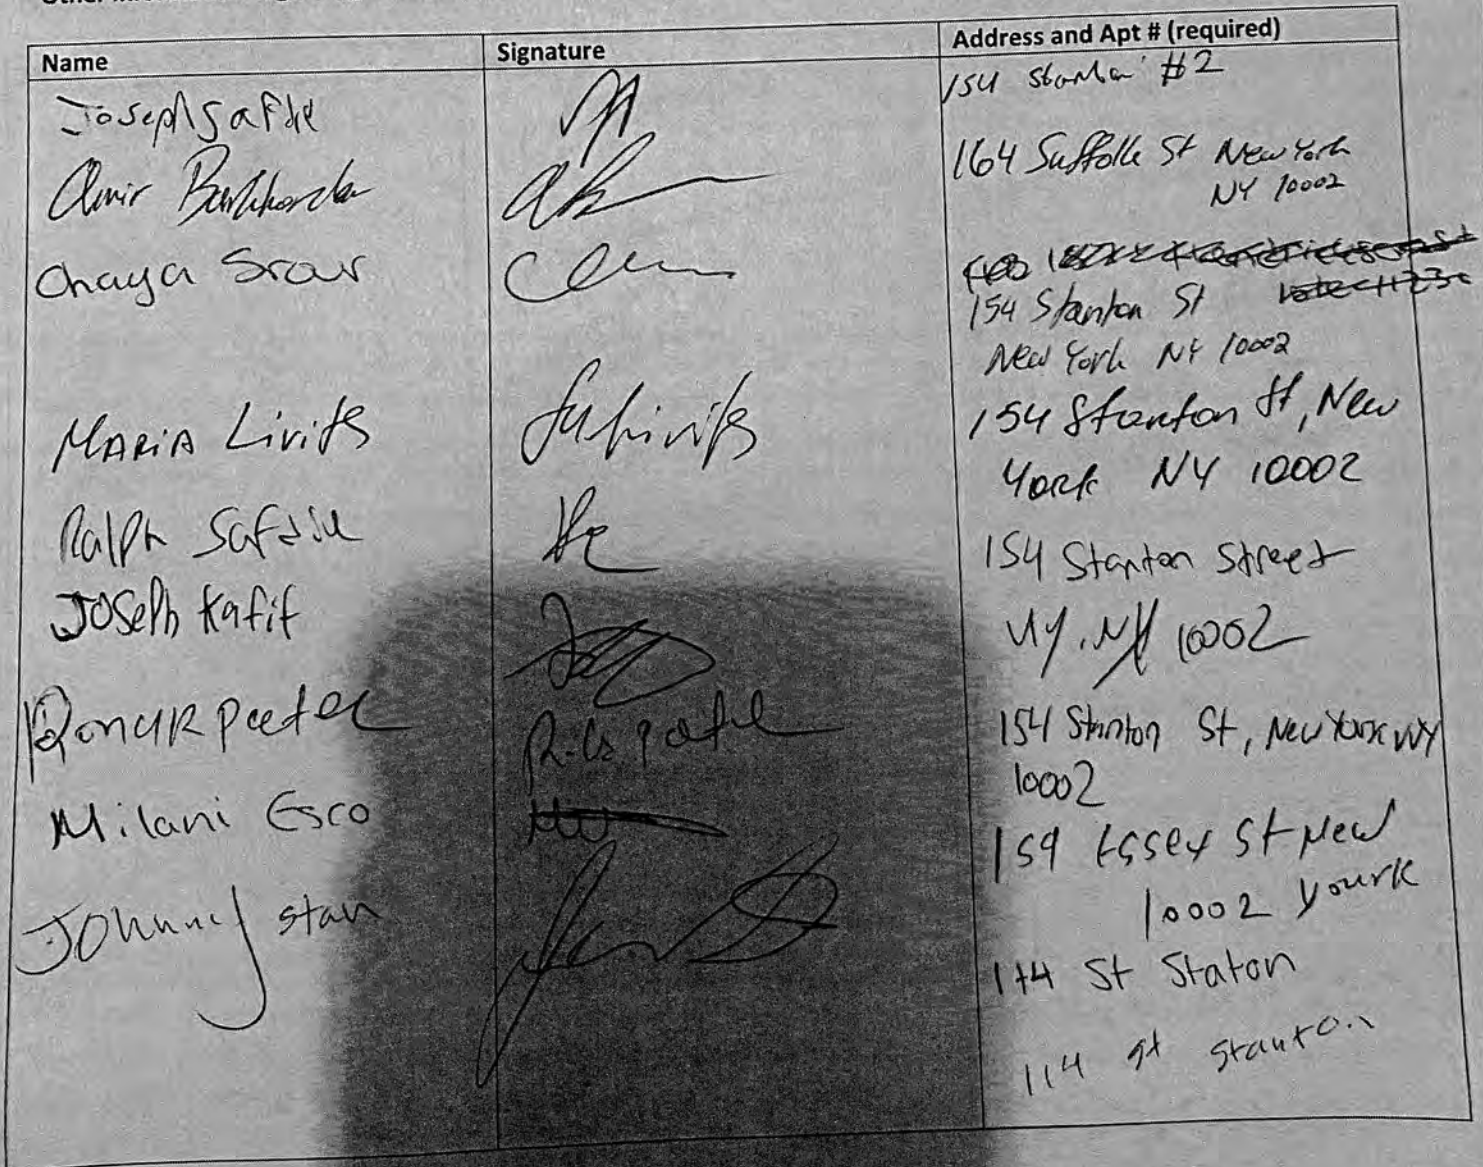 Name
Signature
Address and Apt # (required)
Joseph Safdie
154 #2
Amir
164 Suffolk St New York
NY 10002
Chaya Srour
154 Stanton St
New York NY 10002
MARIA Livits
154 Stanton St, New
York NY 10002
Ralph Safdie
154 Stanton Street
Joseph Kafif
NY. NY 10002
Ronak Patel
R.G. patel
154 Stanton St, New York NY
10002
Milani Esco
159 Essex St New
10002 Yourk
Johnny stan
114 St Staton
114 st stanton